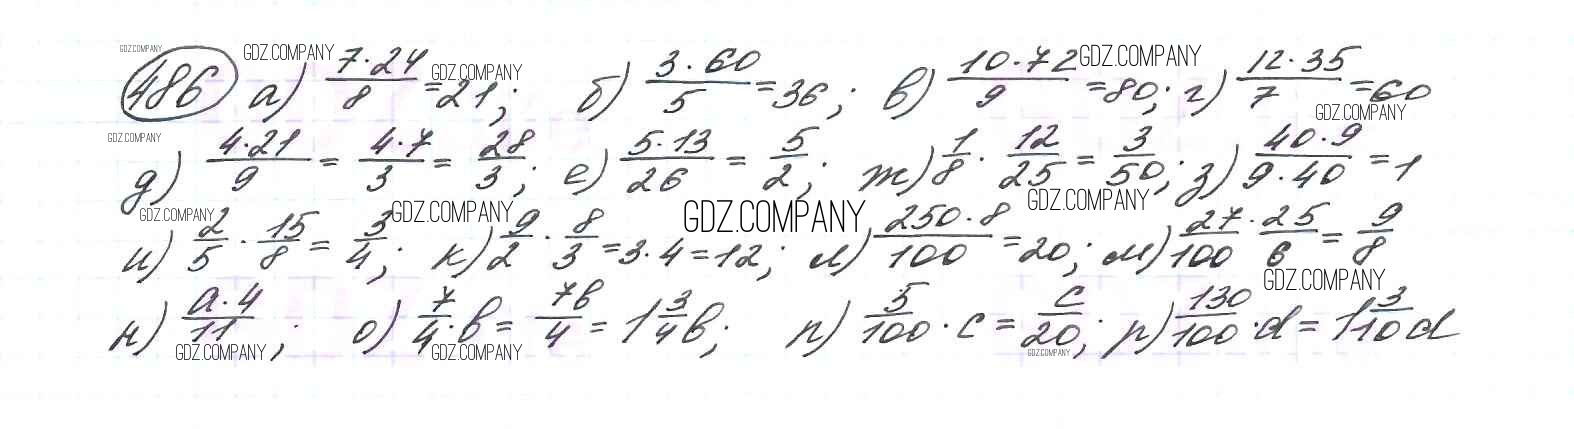 486 а) 7·24/8 = 21; б) 3·60/5 = 36; в) 10·72/9 = 80; г) 12·35/7 = 60
д) 4·21/9 = 4·7/3 = 28/3; е) 5·13/26 = 5/2; ж) 1/8 · 12/25 = 3/50; з) 40·9/9·40 = 1
и) 2/5 · 15/8 = 3/4; к) 9/2 · 8/3 = 3·4 = 12; л) 250·8/100 = 20; м) 27/100 · 25/6 = 9/8
н) a·4/11; о) 7/4 · b = 7b/4 = 1 3/4 b; п) 5/100 · c = c/20; р) 130/100 · d = 1 3/10 d
GDZ.COMPANY
GDZ.COMPANY
GDZ.COMPANY
GDZ.COMPANY
GDZ.COMPANY
GDZ.COMPANY
GDZ.COMPANY
GDZ.COMPANY
GDZ.COMPANY
GDZ.COMPANY
GDZ.COMPANY
GDZ.COMPANY
GDZ.COMPANY
GDZ.COMPANY